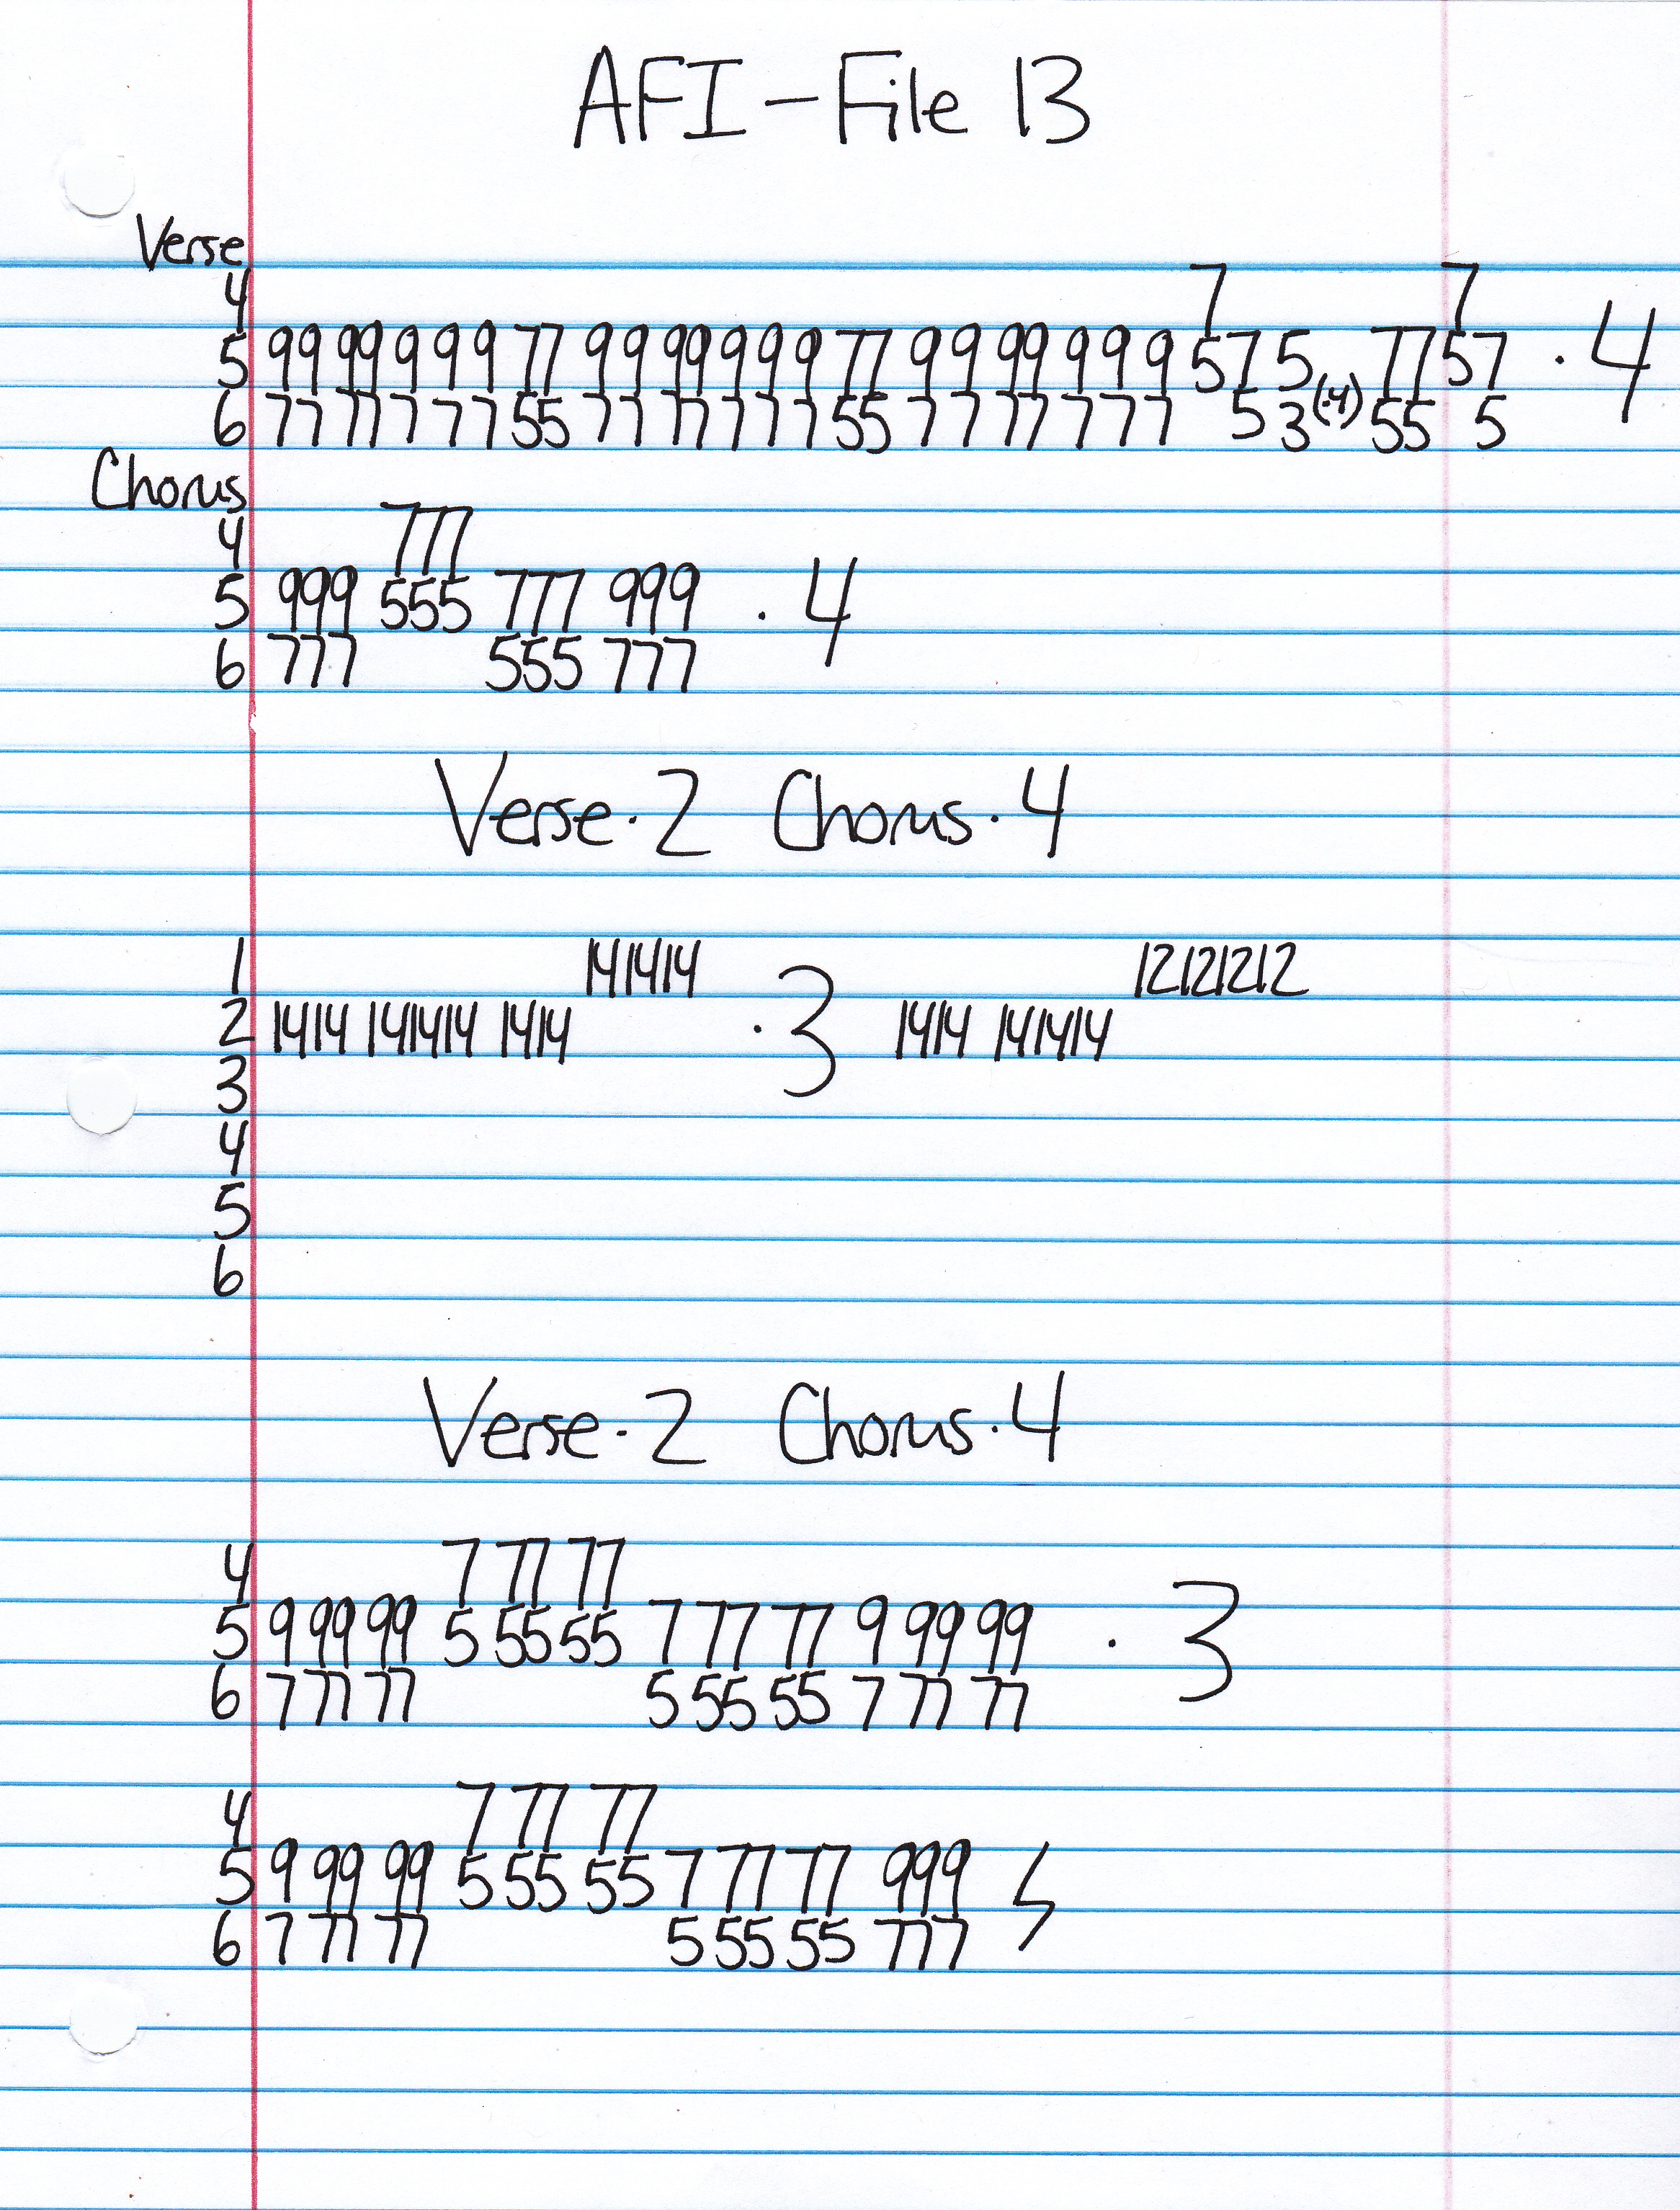 AFI - File 13
Verse
4 7 7
5 99 99 9 99 77 99 99 9 99 77 99 99 9 99 57 5 77 57 · 4
6 77 77 7 77 55 77 77 7 77 55 77 77 7 77 5 3 (·4) 55 5
Chorus
4 777
5 999 555 777 999 · 4
6 777 555 777
Verse · 2 Chorus · 4
1 141414 12121212
2 1414 141414 1414 · 3 1414 141414
3
4
5
6
Verse · 2 Chorus · 4
4 7 77 77
5 9 99 99 5 55 55 7 77 77 9 99 99 · 3
6 7 77 77 5 55 55 7 77 77
4 7 77 77
5 9 99 99 5 55 55 7 77 77 999
6 7 77 77 5 55 55 777